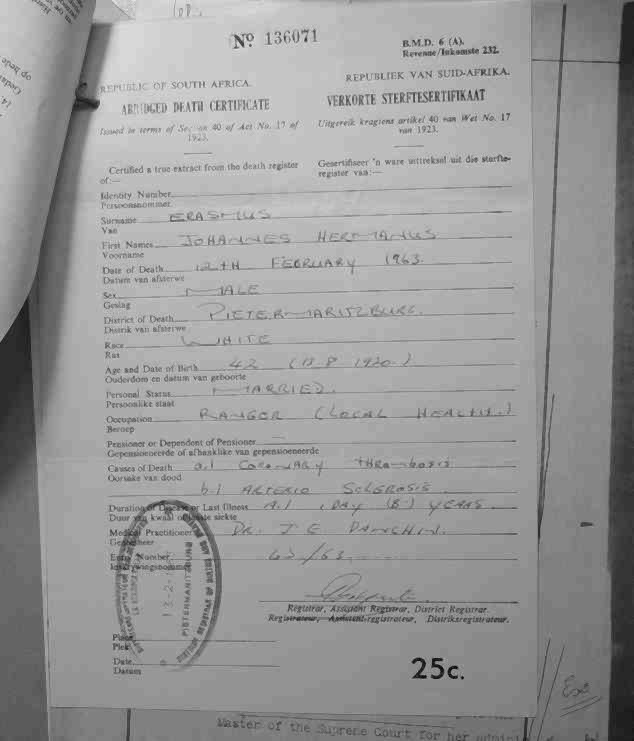 No 136071
B.M.D. 6 (A).
Revenue/Inkomste 232.
REPUBLIC OF SOUTH AFRICA.
REPUBLIEK VAN SUID-AFRIKA.
ABRIDGED DEATH CERTIFICATE
VERKORTE STERFTESERTIFIKAAT
Issued in terms of Section 40 of Act No. 17 of
1923.
Uitgereik kragtens artikel 40 van Wet No. 17
van 1923.
Certified a true extract from the death register
of:—
Gesertifiseer 'n ware uittreksel uit die sterfte-
register van:—
Identity Number
Persoonsnommer
Surname ERASMUS
Van
First Names JOHANNES HERMANUS
Voorname
Date of Death 12TH FEBRUARY 1963.
Datum van afsterwe
Sex MALE
Geslag
District of Death PIETERMARITZBURG.
Distrik van afsterwe
Race WHITE
Ras
Age and Date of Birth 42 (13.8.1920.)
Ouderdom en datum van geboorte
Personal Status MARRIED.
Persoonlike staat
Occupation RANGOR (LOCAL HEALTH.)
Beroep
Pensioner or Dependent of Pensioner —
Gepensioeneerde of afhanklike van gepensioeneerde
Causes of Death a.) CORONARY THROMBOSIS
Oorsake van dood
b.) ARTERIO SCLEROSIS
Duration of Disease or Last Illness A.) 1 DAY (B) YEARS
Duur van kwaal of laaste siekte
Medical Practitioner DR. J E
Geneesheer
Entry Number 63/63.
Inskrywingsnommer
13-2-
PIETERMARITZBURG
Registrar, Assistant Registrar, District Registrar.
Registrateur, Assistent-registrateur, Distriksregistrateur.
Place
Plek
Date
Datum
25c.
Master of the Supreme Court for her